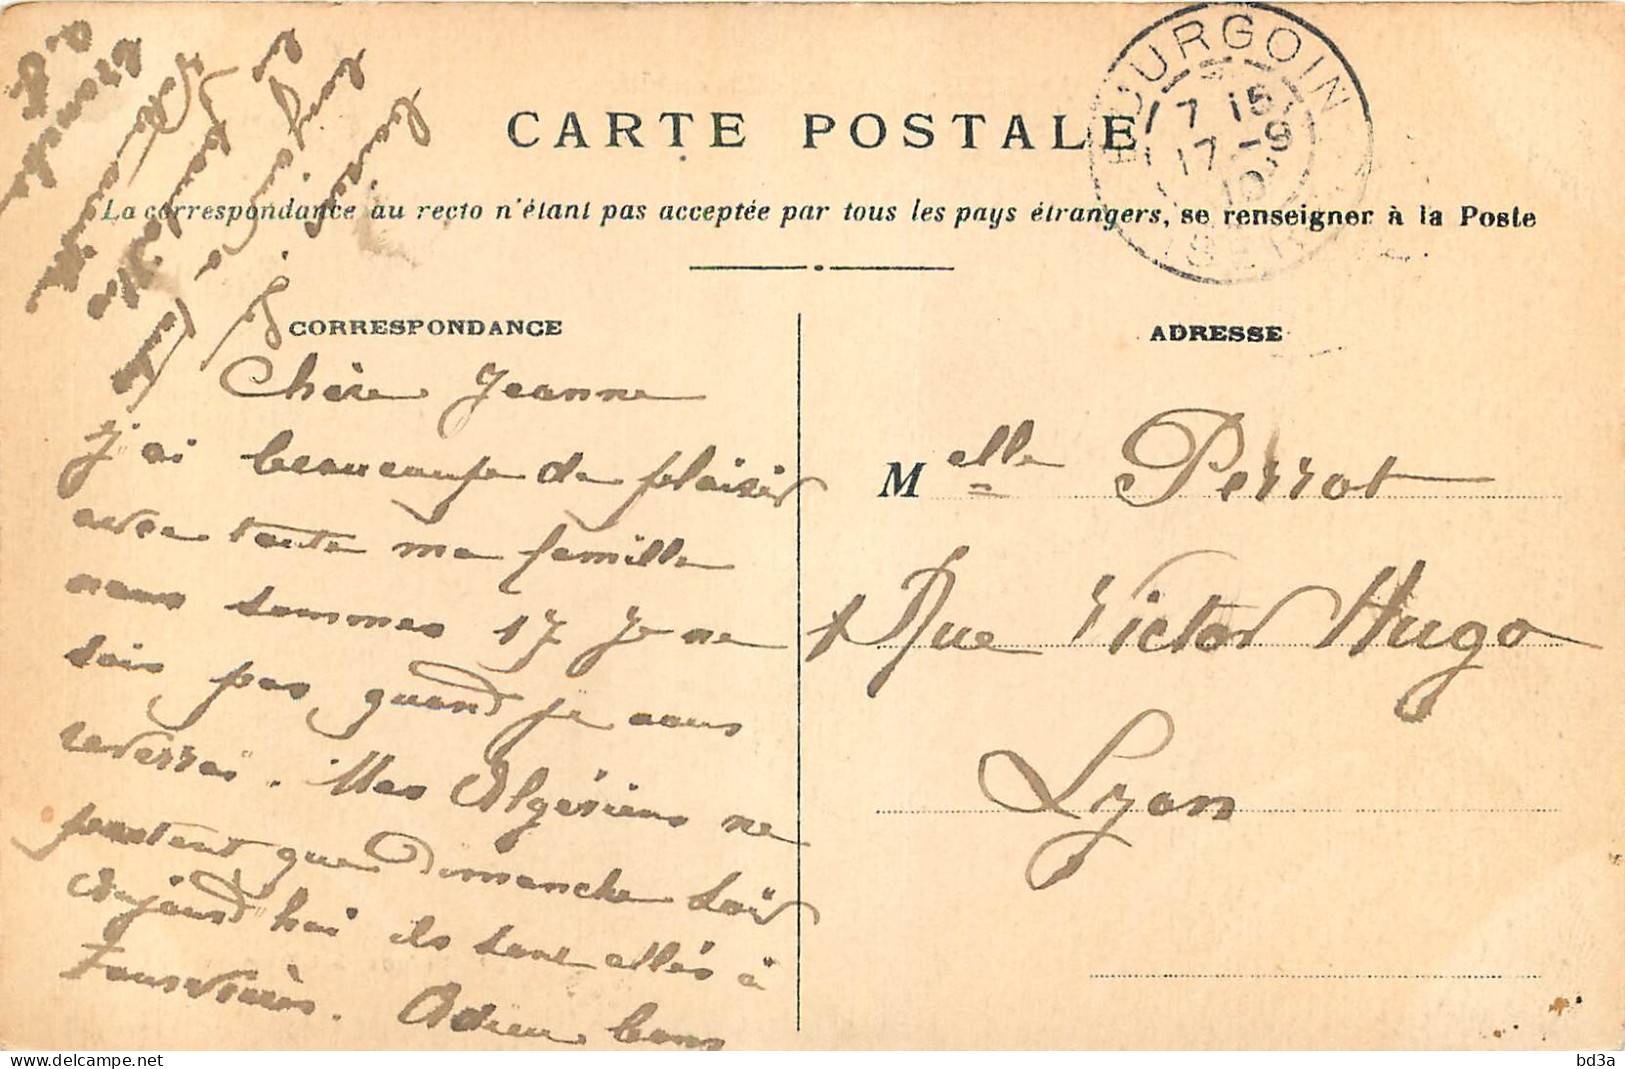 BOURGOIN
7 15
17 -9
10
ISERE
CARTE POSTALE
La correspondance au recto n'étant pas acceptée par tous les pays étrangers, se renseigner à la Poste
CORRESPONDANCE
ADRESSE
Chère Jeanne
j'ai beaucoup de plaisir
avec toute ma famille
nous sommes 17 Je ne
sais pas quand je vous
reverrai. Mes Algériens ne
partent que Dimanche soir
Aujourd'hui ils sont allés à
Adieu bons
Melle Perrot
1 Rue Victor Hugo
Lyon
bd3a